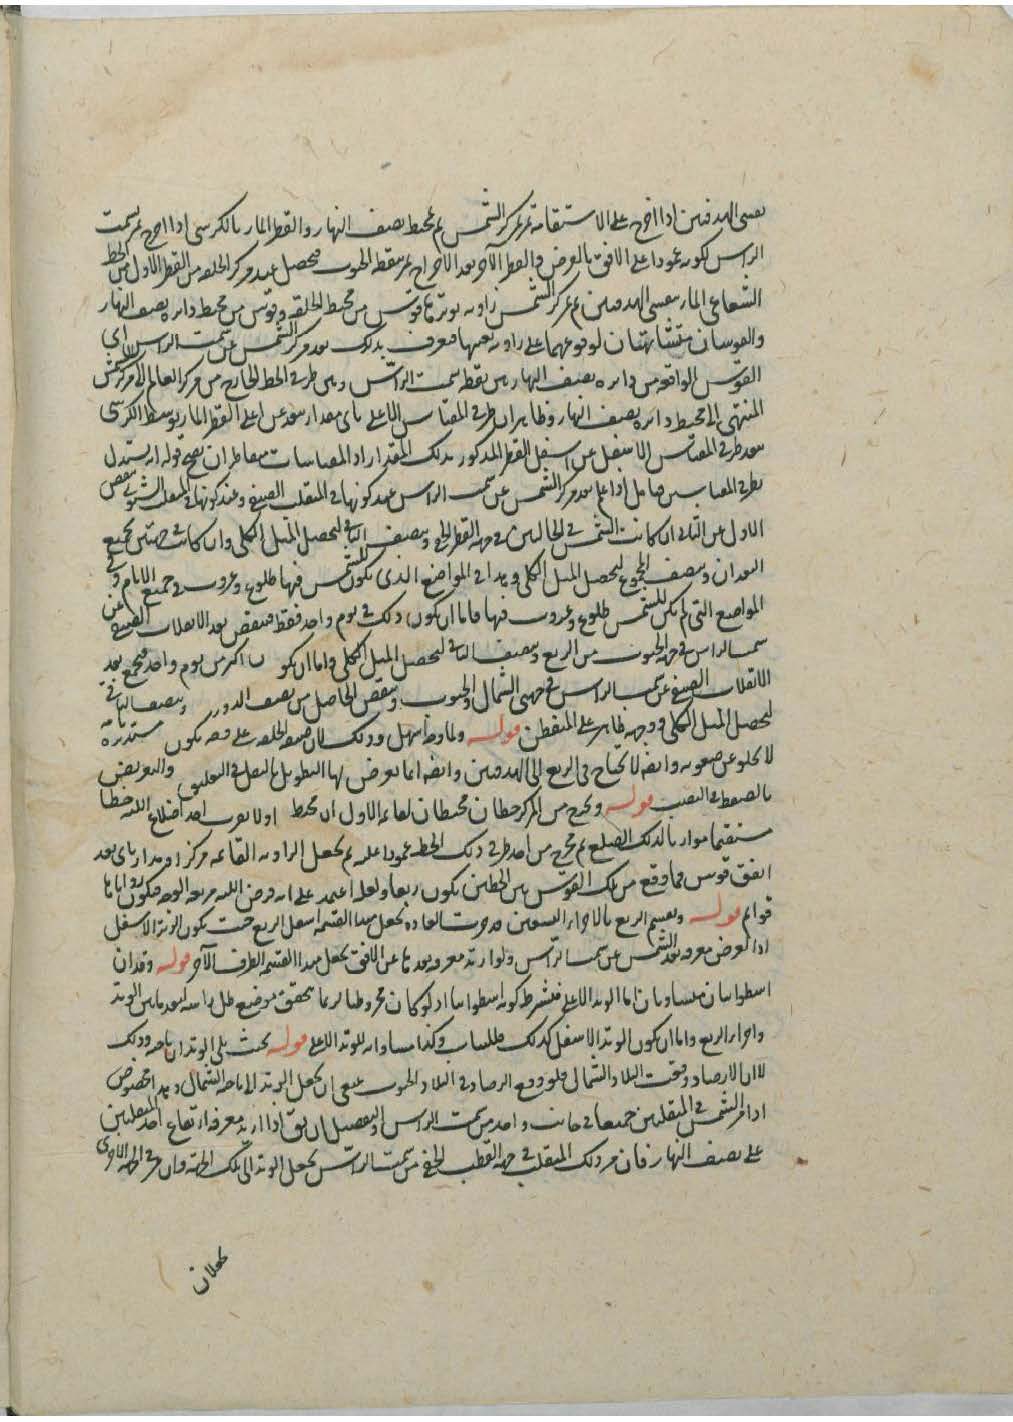 بثقبتي الهدفتين اذا اخرج على الاستقامة تمر بمركز الشمس ثم بمحيط نصف النهار والقطر المار بالكرسي اذا اخرج تمر بسمت
الراس لكونه عمودا على الافق بالعرض والقطر الآخر بعد الاخراج تمر بنقطة الجنوب فحصل عند مركز الحلقة من القطر الاول من الخط
الشعاعي المار بثقبتي الهدفتين ثم بمركز الشمس زاوية يوترها قوس من محيط الحلقة وقوس من محيط دايرة نصف النهار
والقوسان متشابهتان لوقوعهما على زاوية بعينها فعرف بذلك بعد مركز الشمس عن سمت الراس اي
القوس الواقع من دايرة نصف النهار بين نقطة سمت الراس وبين طرف الخط الخارج من مركز العالم الى مركز الشمس
المنتهي الى محيط دايرة نصف النهار وظاهر ان طرف المقياس الاعلى باي مقدار يبعد عن اعلى القطر المار بوسط الكرسي
يبعد طرف المقياس الاسفل عن اسفل القطر المذكور بذلك المقدار اذ المقياسات متقاطران فصح قوله انه يستدل
بطرفي المقياس فتامل اذا علم بعد مركز الشمس عن سمت الراس عند كونها في المنقلب الصيفي وعند كونها في المنقلب الشتوي ينقص
الاول عن الثاني ان كانت الشمس في الحالين في جهة القطب الخفي وينصف الباقي ليحصل الميل الكلي وان كانت في جهتين يجمع
البعدان وينصف المجموع ليحصل الميل الكلي وهذا في المواضع الذي يكون للشمس فيها طلوع وغروب في جميع الايام وفي
المواضع التي لم يكن للشمس طلوع وغروب فيها فاما ان يكون ذلك في يوم واحد فقط فينقص بعد الانقلاب الصيفي عن
سمت الراس في جهة الجنوب من الربع وينصف الباقي ليحصل الميل الكلي واما ان يكون اكثر من يوم واحد فيجمع بعدي
الانقلاب الصيفي عن سمت الراس في جهتي الشمال والجنوب وينقص الحاصل من نصف الدور وينصف الباقي
ليحصل الميل الكلي ووجهه ظاهر على المتفطن قوله ولما هو اسهل وذلك لان صنعة الحلقة على وجه يكون مستديرة تامة
لا يخلو عن صعوبة وايضا لا يحتاج في الربع الى الهدفتين وايضا انما يعرض لها التطويل بالثقل في التعليق والتعريض
بالضغط في النصب قوله ويخرج من المركز خطان محيطان بقائمة الاول ان يخط اولا بقرب احد اضلاع اللبنة خطا
مستقيما موازيا لذلك الضلع ثم يخرج من احد طرفي ذلك الخط عمودا عليه ثم يجعل الزاوية القائمة مركزا ويدار باي بعد
اتفق قوس فما وقع من تلك القوس بين الخطين يكون ربعا ولعله اعتمد على انه فرض اللبنة مربعة الوجه فيكون زواياها
قوائم قوله ويقسم الربع بالاجزاء التسعين قد جرت العادة بجعل مبدا القسمة اسفل الربع حيث يكون الوتد الاسفل
اذ الغرض معرفة بعد الشمس عن سمت الراس ولو اريد معرفة بعدها عن الافق يجعل مبدا القسمة الطرف الآخر قوله وتدان
اسطوانيان متساويان اما الوتد الاعلى فيشترط كونه اسطوانيا اذ لو كان مخروطا لربما تحقق موضع ظل راسه لبعد ما بين الوتد
واجزاء الربع واما ان يكون الوتد الاسفل كذلك فللمناسبة وكذا مساواته للوتد الاعلى قوله بحيث يلي الوتدان ناحية وذلك
لان الارصاد وقعت البلاد الشمالي فلو وقع الرصاد في البلاد الجنوب ينبغي ان يجعل الوتد الى ناحية الشمال وهذا مخصوص
اذا مر الشمس في المنقلبين جميعا في جانب واحد من سمت الراس والتفصيل ان يق اذا اريد معرفة ارتفاع احد المنقلبين
على نصف النهار فان مر ذلك المنقلب في جهة القطب الخفي من سمت الراس يجعل الوتد الى تلك الجهة وان مر في الجهة الاخرى
يجعلان